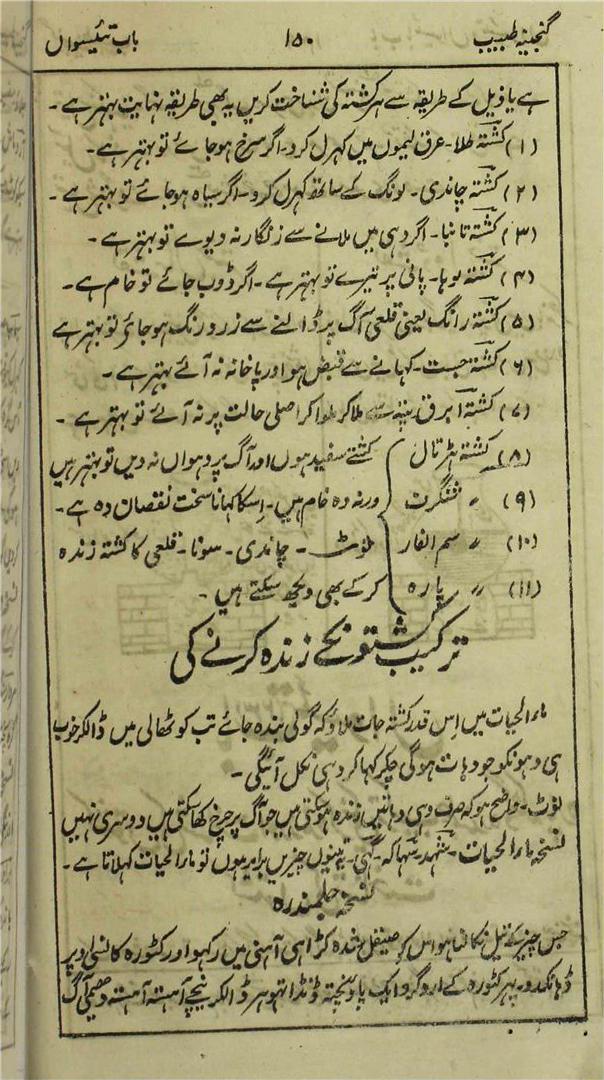 گنجینہ طبیب ۱۵۰ باب تئیسواں
ہے یا ذیل کے طریقہ سے ہر کشتہ کی شناخت کریں یہ بھی طریقہ نہایت بہتر ہے۔
(۱) کشتہ طلا۔ عرق لیموں میں کہرل کرو۔ اگر سرخ ہوجائے تو بہتر ہے۔
(۲) کشتہ چاندی۔ لونگ کے ساتھ کہرل کرو۔ اگر سیاہ ہوجائے تو بہتر ہے۔
(۳) کشتہ تانبا۔ اگر دہی میں ملانے سے زنگار نہ دیوے تو بہتر ہے۔
(۴) کشتہ لوہا۔ پانی پر تیرے تو بہتر ہے۔ اگر ڈوب جائے تو خام ہے۔
(۵) کشتہ رانگ یعنی قلعی آگ پر ڈالنے سے زرد رنگ ہوجائے تو بہتر ہے
(۶) کشتہ جست۔ کہانے سے قبض ہو اور پاخانہ نہ آئے بہتر ہے۔
(۷) کشتہ ابرق سے ملا کر اصلی حالت پر نہ آئے تو بہتر ہے۔
(۸) کشتہ ہڑتال کشتے سفید ہوں اور آگ پر دہواں نہ دیں تو بہتر ہیں
(۹) 〃 شنگرت ورنہ وہ خام ہیں۔ اسکا کہانا سخت نقصان دہ ہے۔
(۱۰) 〃 سم الفار نوٹ۔ چاندی۔ سونا۔ قلعی کا کشتہ زندہ
(۱۱) 〃 پارہ کر کے بھی دیکھ سکتے ہیں۔
ترکیب کشتونکے زندہ کرنے کی
ماء الحیات میں اس قدر کشتہ جات ملاؤ کہ گولی بندہ جائے تب کوٹھالی میں ڈالکر خوب
ہی دہونکو جو دہات ہوگی چکر کہا کر وہی نکل آئیگی۔
نوٹ۔ واضح ہو کہ صرف وہی دہاتیں زندہ ہوسکتی ہیں جو آگ پر چرخ کھا سکتی ہیں دوسری نہیں
نسخہ ماء الحیات۔ شہد۔ سہاگہ۔ گہی۔ یہ تینوں چیزیں برابر ہوں تو ماء الحیات کہلاتا ہے۔
نسخہ جلمندرہ
جس چیز کا تیل نکالنا ہو اس کو صیقل شدہ کڑاہی آہنی میں رکہو اور کٹورہ کانسی اوپر
ڈہانکدو۔ پہر کٹورہ کے ارد گرد ایک پاؤ پختہ ڈنڈا تہوہر ڈالکر نیچے آہستہ آہستہ دھیمی آگ